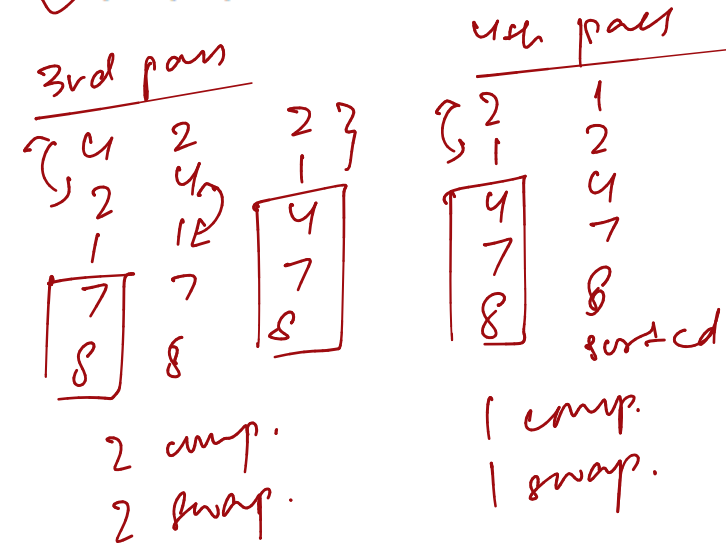 3rd pass
4 2 2
2 4 1
1 1 4
7 7 7
8 8 8
2 comp.
2 swap.
4th pass
2 1
1 2
4 4
7 7
8 8
sorted
1 comp.
1 swap.